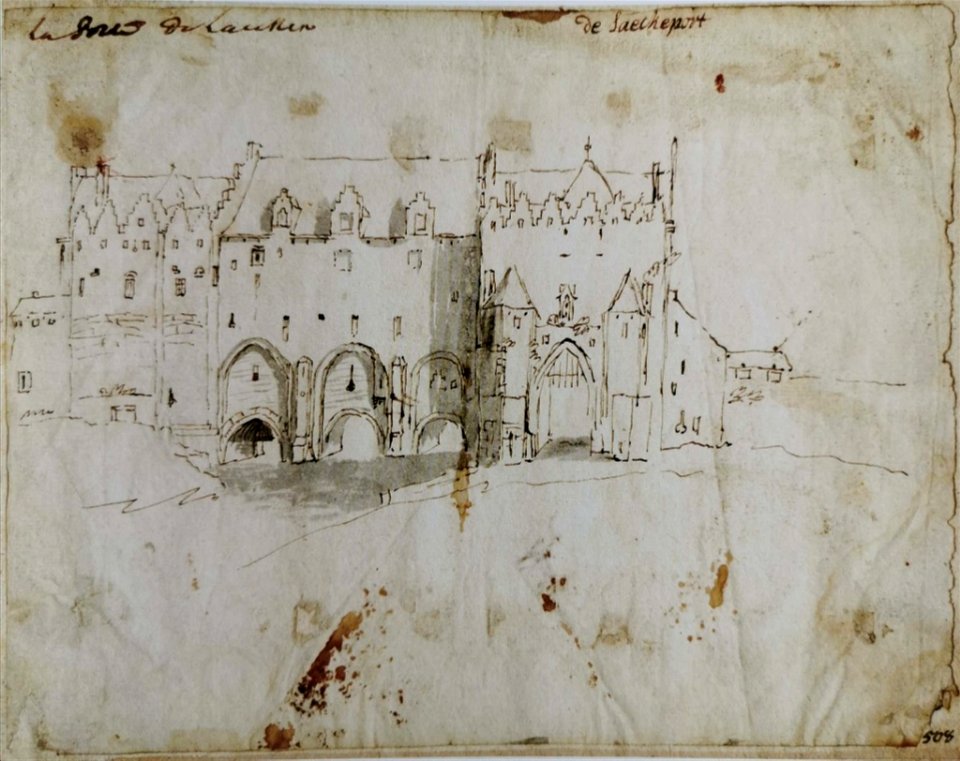 la Porte De Laecken
de Laecheport
508